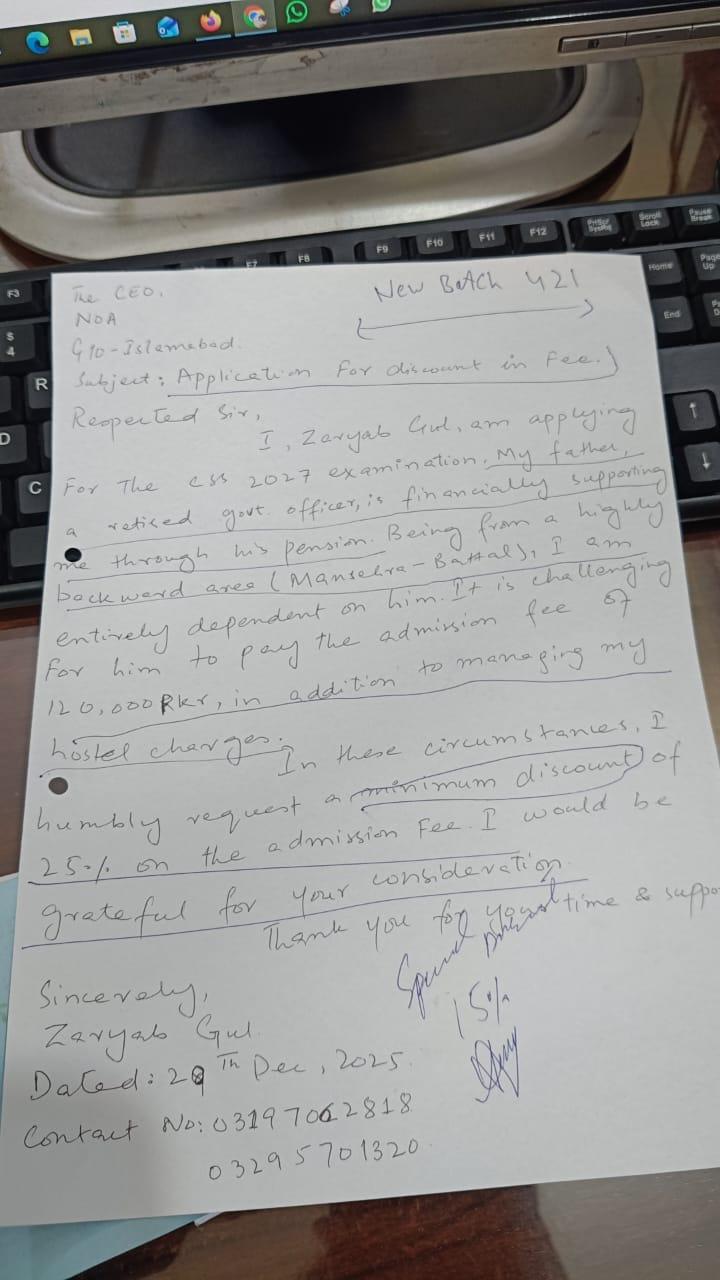 F7 F8 F9 F10 F11 F12 PrtScr SysRq Scroll Lock Pause Break
F3
$ 4
R
D
C
Home
Page Up
End
New Batch 421
The CEO,
NOA
G10-Islamabad.
Subject: Application For discount in Fee.
Respected Sir,
I, Zaryab Gul, am applying
For The CSS 2027 examination. My father,
a retired govt. officer, is financially supporting
me through his pension. Being from a highly
backward area (Mansehra-Battal), I am
entirely dependent on him. It is challenging
For him to pay the admission fee of
120,000 PKR, in addition to managing my
hostel charges.
In these circumstances, I
humbly request a minimum discount of
25% on the admission Fee. I would be
grateful for your consideration.
Thank you for your time & suppo
Special Discount
15%
Sincerely,
Zaryab Gul
Dated: 29Th Dec, 2025.
Contact No: 03197062818
03295701320